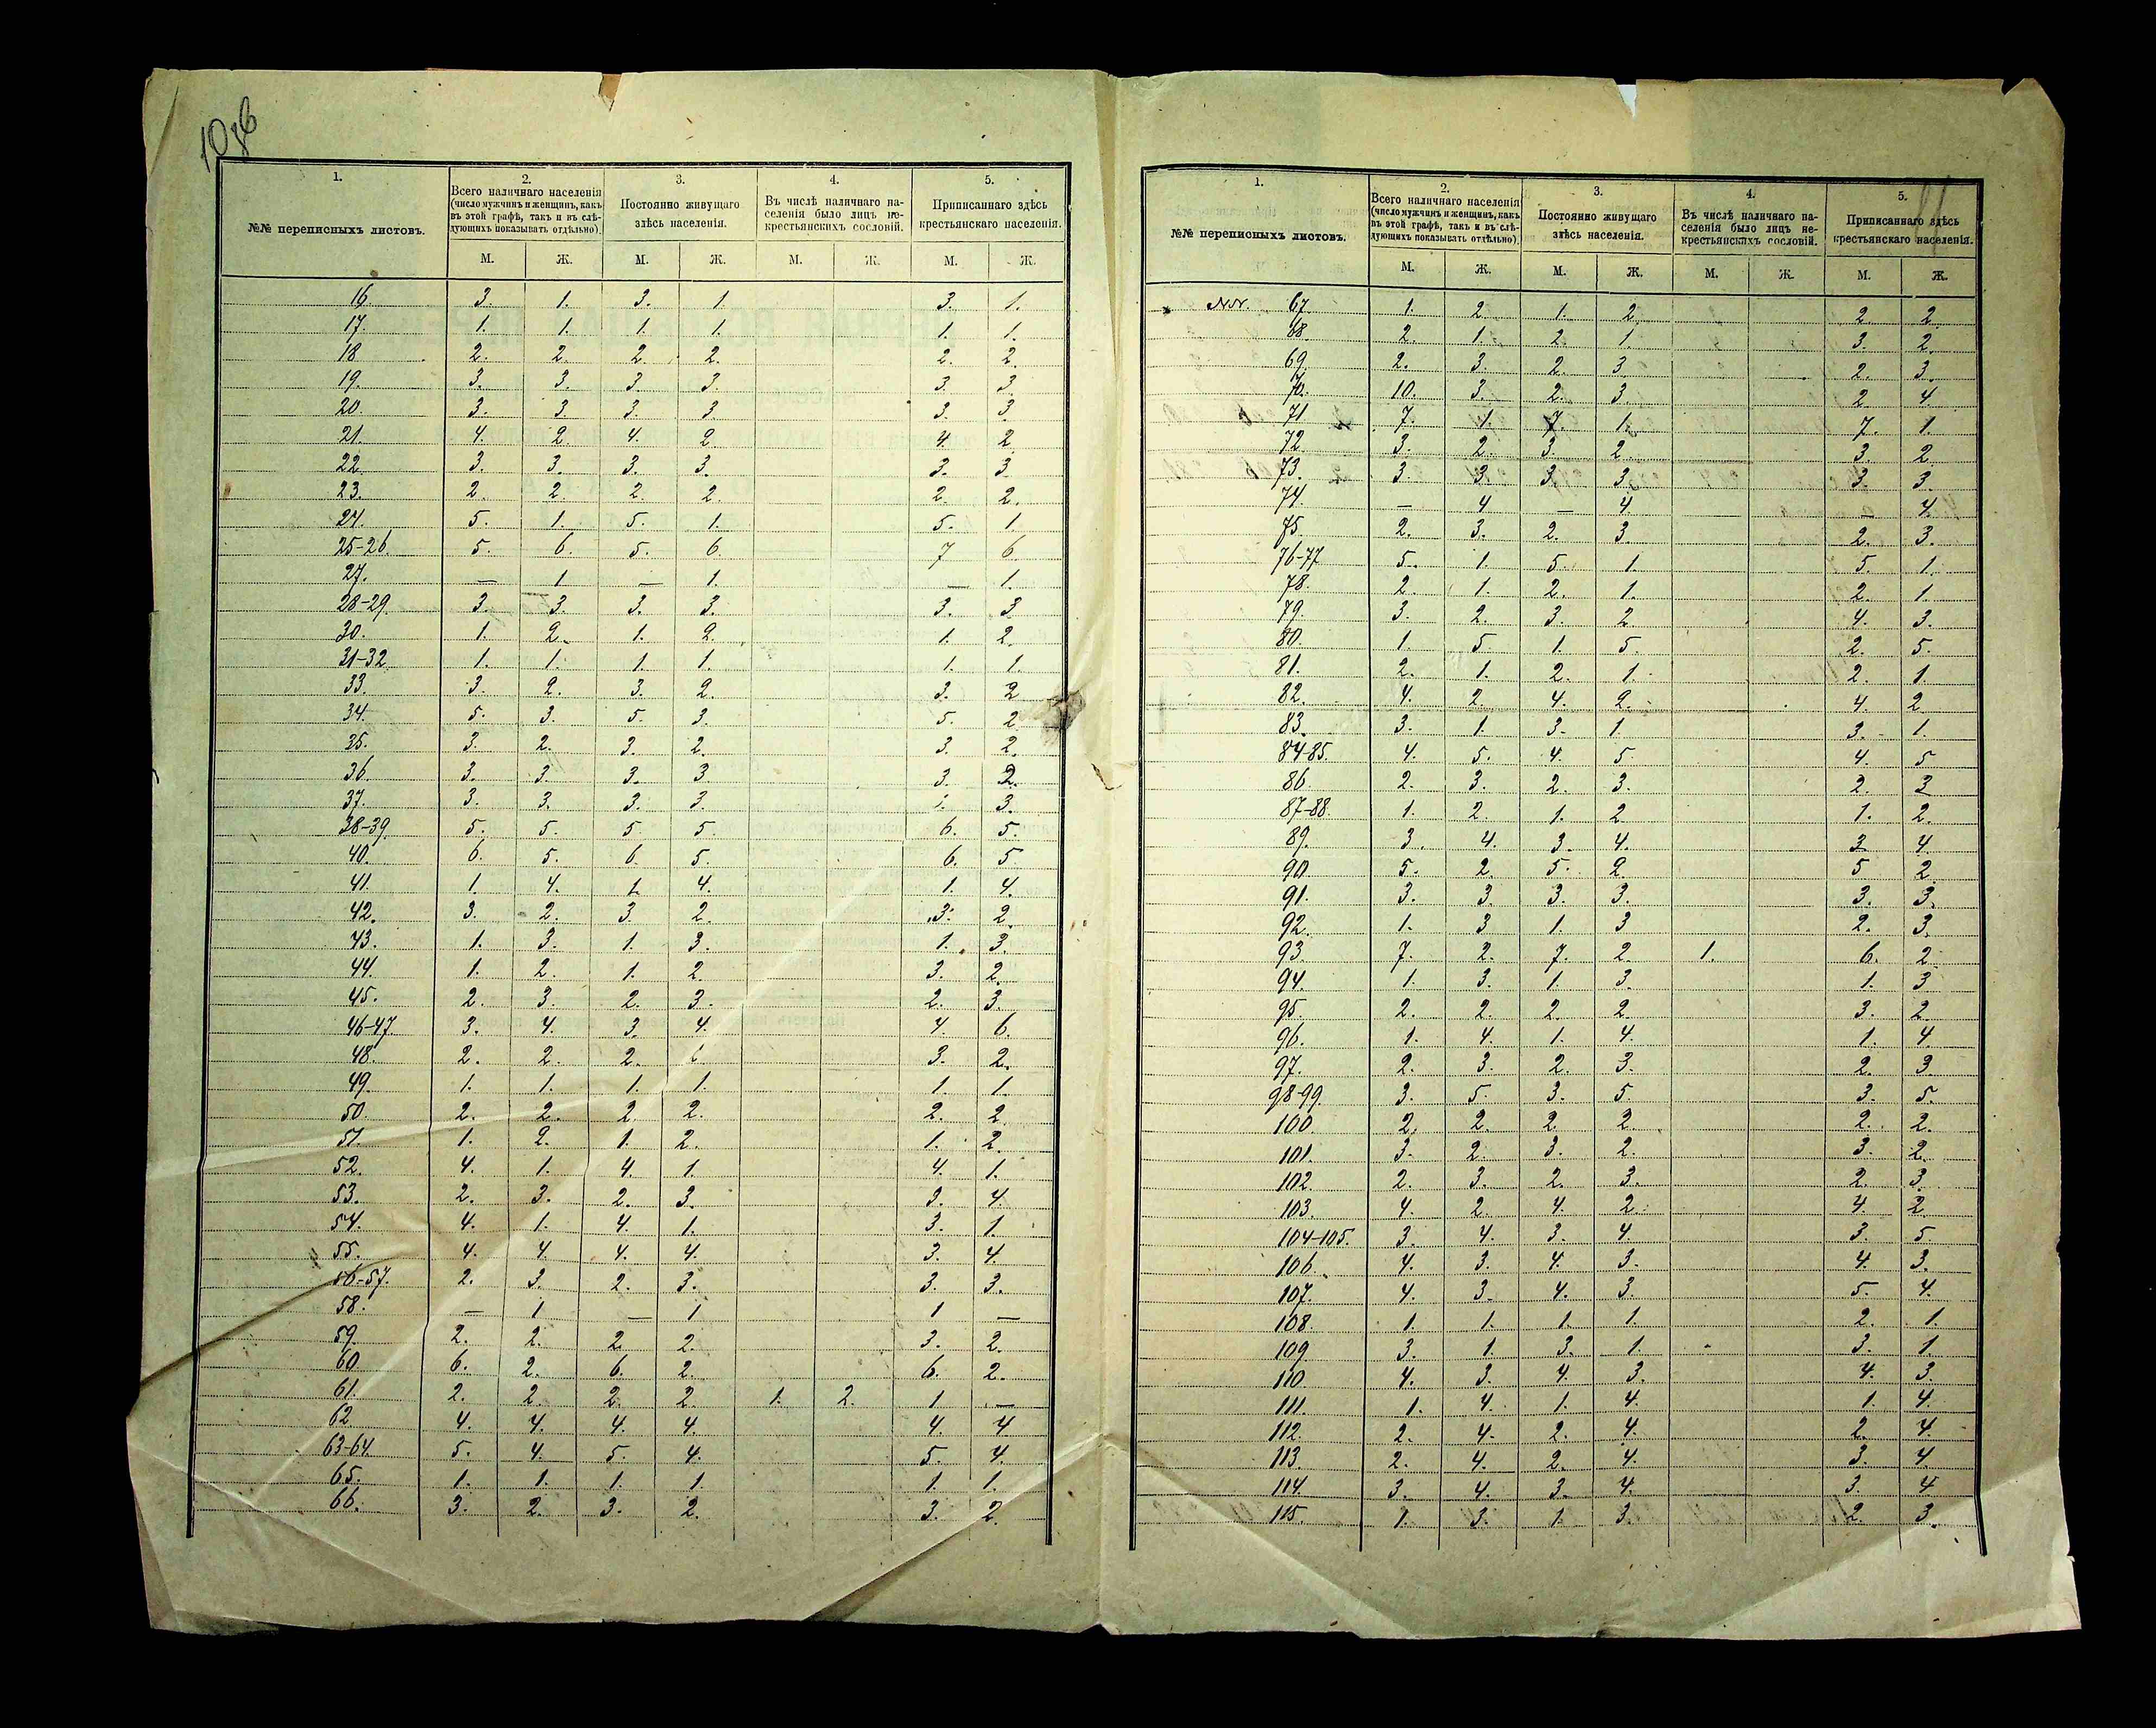 10об
1.
2.
3.
4.
5.
№№ переписныхъ листовъ.
Всего наличнаго населенія (число мужчинъ и женщинъ, какъ въ этой графѣ, такъ и въ слѣдующихъ показывать отдѣльно).
Постоянно живущаго здѣсь населенія.
Въ числѣ наличнаго населенія было лицъ некрестьянскихъ сословій.
Приписаннаго здѣсь крестьянскаго населенія.
М. Ж. М. Ж. М. Ж. М. Ж.
16. 3. 1. 3. 1. 3. 1.
17. 1. 1. 1. 1. 1. 1.
18 2. 2. 2. 2. 2. 2.
19. 3. 3. 3. 3. 3. 3.
20. 3. 3. 3. 3 3. 3
21. 4. 2. 4. 2. 4. 2
22. 3. 3. 3. 3. 3. 3
23. 2. 2. 2. 2. 2. 2.
24. 5. 1. 5. 1. 5. 1.
25-26. 5. 6. 5. 6. 7 6
27. — 1 — 1. — 1.
28-29. 3. 3. 3. 3. 3. 3
30. 1. 2. 1. 2. 1. 2.
31-32 1. 1. 1. 1. 1. 1
33. 3. 2. 3. 2. 3. 2
34. 5. 3. 5. 3. 5. 2
35. 3. 2. 3. 2. 3. 2.
36. 3. 3. 3. 3 3. 2.
37. 3. 3. 3. 3. 3.
38-39. 5. 5. 5. 5. 6. 5.
40. 6. 5. 6. 5. 6. 5
41. 1. 4. 1. 4. 1. 4.
42. 3. 2. 3. 2. 3. 2.
43. 1. 3. 1. 3. 1. 3.
44. 1. 2. 1. 2. 3. 2.
45. 2. 3. 2. 3. 2. 3.
46-47. 3. 4. 3. 4. 4. 6.
48. 2. 2. 2. 3. 2.
49. 1. 1. 1. 1. 1. 1.
50. 2. 2. 2. 2. 2. 2
51. 1. 2. 1. 2. 1. 2.
52. 4. 1. 4. 1. 4. 1.
53. 2. 3. 2. 3. 3. 4.
54. 4. 1. 4. 1. 3. 1.
55. 4. 4. 4. 4. 3. 4.
56-57. 2. 3. 2. 3. 3. 3.
58. — 1 — 1 1 —
59. 2. 2. 2. 2. 3. 2.
60 6. 2. 6. 2. 6. 2.
61. 2. 2. 2. 2. 1. 2. 1 —
62. 4. 4. 4. 4. 4. 4
63-64. 5. 4. 5. 4. 5. 4.
65. 1. 1. 1. 1. 1. 1.
66. 3. 2. 3. 2. 3. 2.
1.
2.
3.
4.
5.
№№ переписныхъ листовъ.
Всего наличнаго населенія (число мужчинъ и женщинъ, какъ въ этой графѣ, такъ и въ слѣдующихъ показывать отдѣльно).
Постоянно живущаго здѣсь населенія.
Въ числѣ наличнаго населенія было лицъ некрестьянскихъ сословій.
Приписаннаго здѣсь крестьянскаго населенія.
М. Ж. М. Ж. М. Ж. М. Ж.
NN. 67. 1. 2. 1. 2. 2. 2.
68. 2. 1. 2. 1. 3. 2.
69. 2. 3. 2. 3. 2. 3.
70. 10. 3. 2. 3. 2. 4
71 7. 1. 7. 1. 7. 1.
72. 3. 2. 3. 2. 3. 2.
73. 3. 3. 3. 3. 3. 3
74. — 4 — 4. — 4.
75. 2. 3. 2. 3. 2. 3.
76-77 5. 1. 5. 1. 5. 1.
78. 2. 1. 2. 1. 2. 1
79. 3. 2. 3. 2 4. 3.
80. 1. 5. 1. 5. 2. 5.
81. 2. 1. 2. 1. 2. 1
82. 4. 2. 4. 2. 4. 2
83. 3. 1. 3. 1. 3. 1.
84-85. 4. 5. 4. 5. 4. 5
86 2. 3. 2. 3. 2. 3
87-88. 1. 2. 1. 2 1. 2.
89. 3. 4. 3. 4. 3 4.
90 5. 2. 5. 2. 5 2.
91. 3. 3. 3. 3. 3. 3.
92. 1. 3 1. 3 2. 3.
93. 7. 2. 7. 2. 1. 6. 2
94. 1. 3. 1. 3. 1. 3
95. 2. 2. 2. 2. 3. 2.
96. 1. 4. 1. 4. 1. 4.
97. 2. 3. 2. 3. 2. 3.
98-99. 3. 5. 3. 5. 3. 5.
100 2. 2. 2. 2. 2. 2.
101. 3. 2. 3. 2. 3. 2.
102 2. 3. 2. 3. 2. 3.
103. 4. 2. 4. 2. 4. 2.
104-105. 3. 4. 3. 4. 3. 5.
106. 4. 3. 4. 3. 4. 3.
107. 4. 3. 4. 3. 5. 4.
108 1. 1. 1. 1. 2. 1.
109. 3. 1. 3. 1. 3. 1.
110 4. 3. 4. 3. 4. 3.
111. 1. 4. 1. 4. 1. 4.
112. 2. 4. 2. 4. 2. 4.
113. 2. 4. 2. 4. 3. 4
114 3. 4. 3. 4. 3. 4
115. 1. 3. 1. 3. 2. 3.